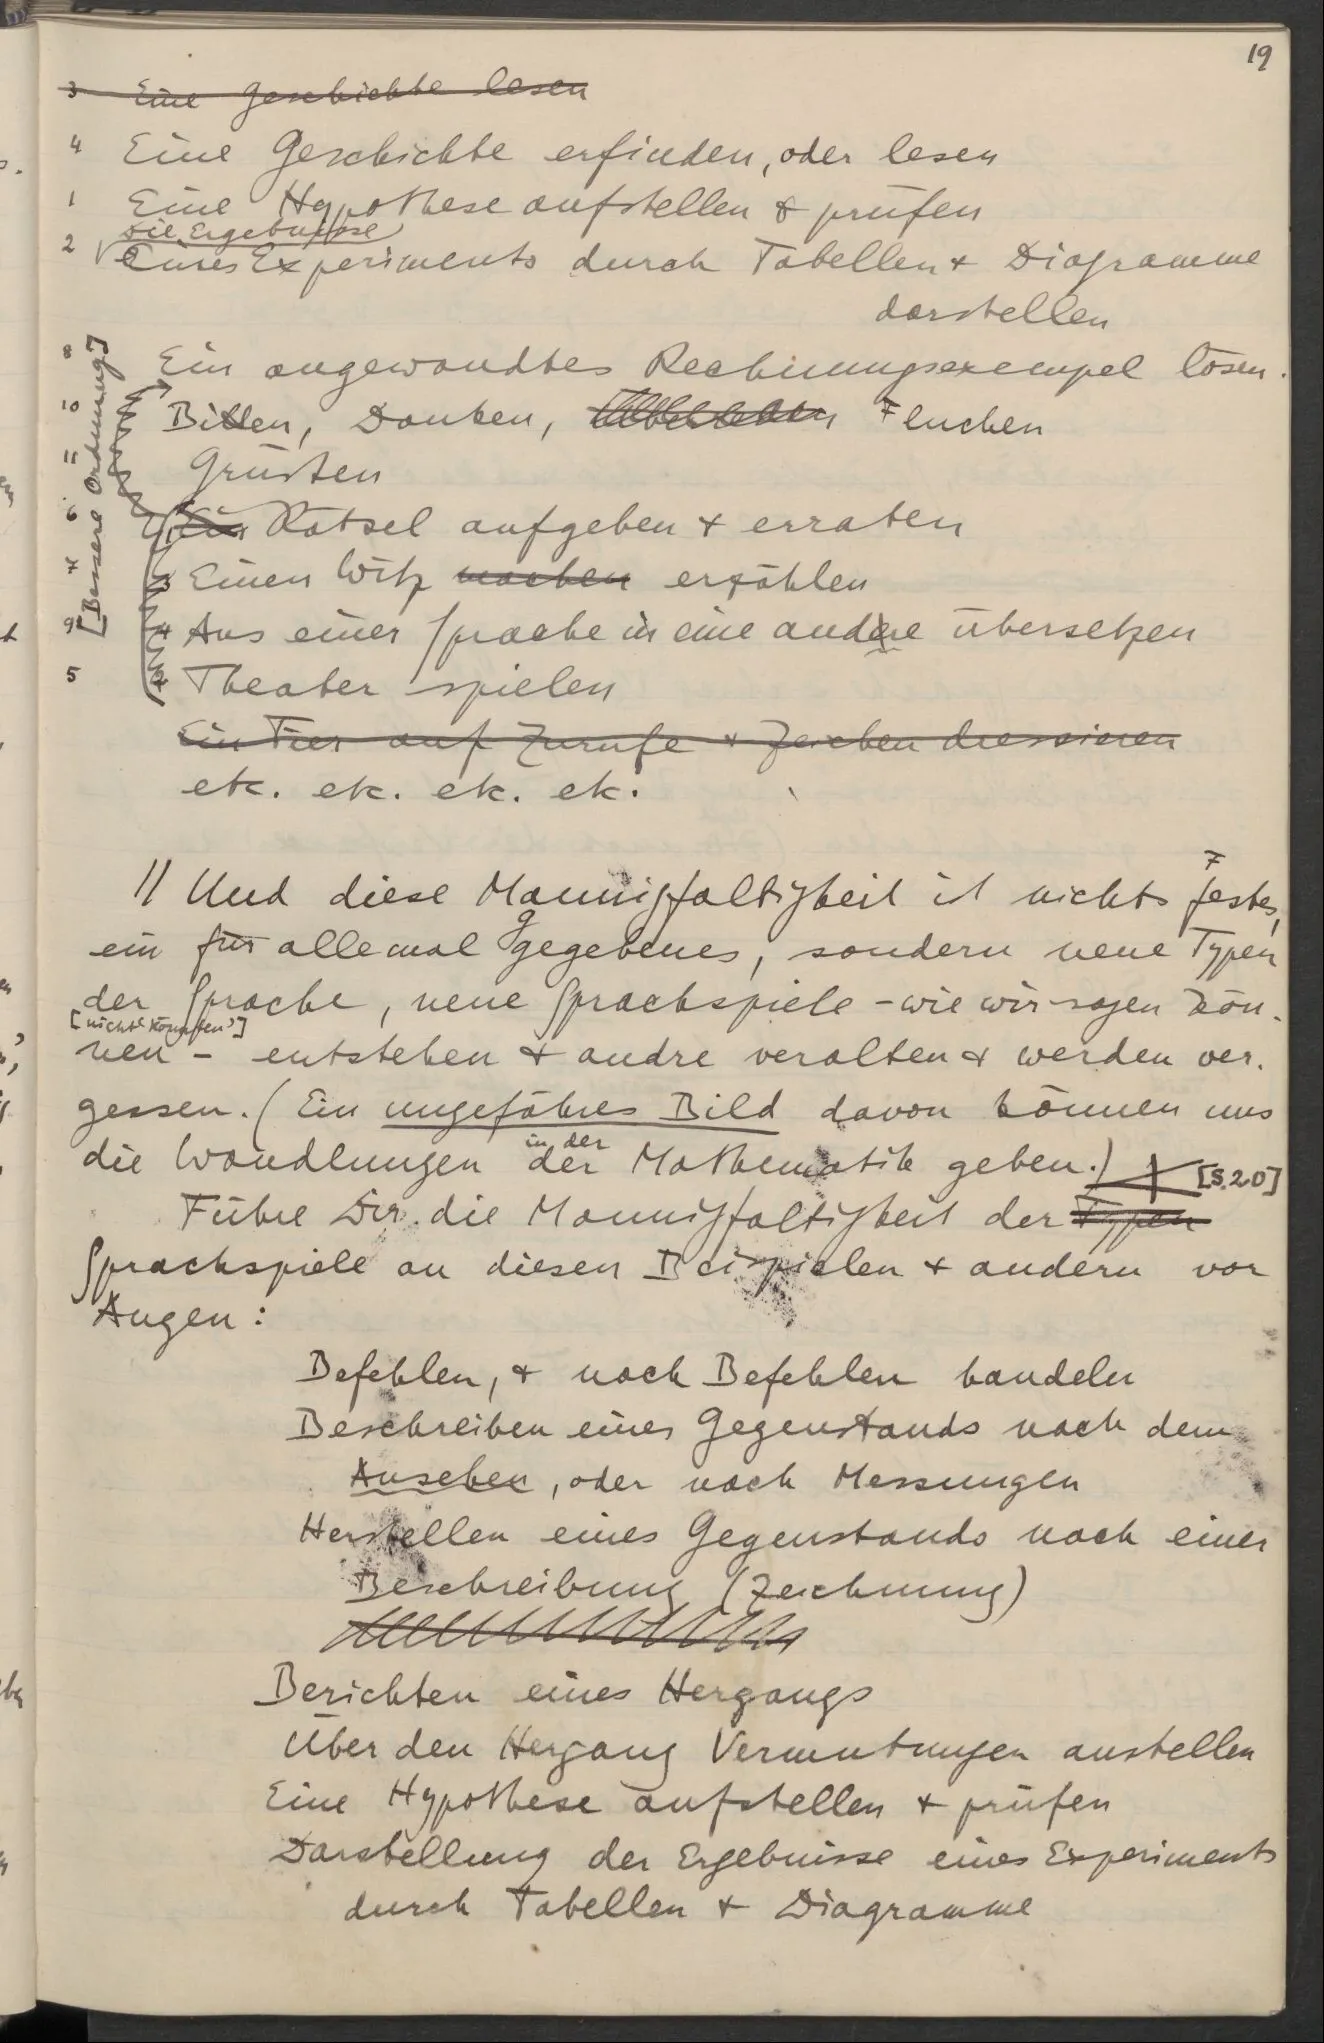 19
3 Eine Geschichte lesen
4 Eine Geschichte erfinden, oder lesen
1 Eine Hypothese aufstellen & prüfen
die Ergebnisse
2 eines Experiments durch Tabellen & Diagramme
darstellen
8 Ein angewandtes Rechnungsexempel lösen.
10 Bitten, Danken, Fluchen
11 Grüßen
6 Ein Rätsel aufgeben & erraten
7 3 Einen Witz machen erzählen
9 4 Aus einer Sprache in eine andere übersetzen
5 2 Theater spielen
[Bessere Ordnung]
Ein Tier auf Zurufe & Zeichen dressieren
etc. etc. etc. etc.
// Und diese Mannigfaltigkeit ist nichts Festes,
ein für allemal gegebenes, sondern neue Typen
der Sprache, neue Sprachspiele – wie wir sagen kön-
[nicht ‘könnten’]
nen – entstehen & andre veralten & werden ver-
gessen. (Ein ungefähres Bild davon können uns
in der
die Wandlungen der Mathematik geben.) [S.20]
Führe Dir die Mannigfaltigkeit der Typen
Sprachspiele an diesen Beispielen & andern vor
Augen:
Befehlen, & nach Befehlen handeln
Beschreiben eines Gegenstands nach dem
Ansehen, oder nach Messungen
Herstellen eines Gegenstands nach einer
Beschreibung (Zeichnung)
Berichten eines Hergangs
Über den Hergang Vermutungen anstellen
Eine Hypothese aufstellen & prüfen
Darstellung der Ergebnisse eines Experiments
durch Tabellen & Diagramme